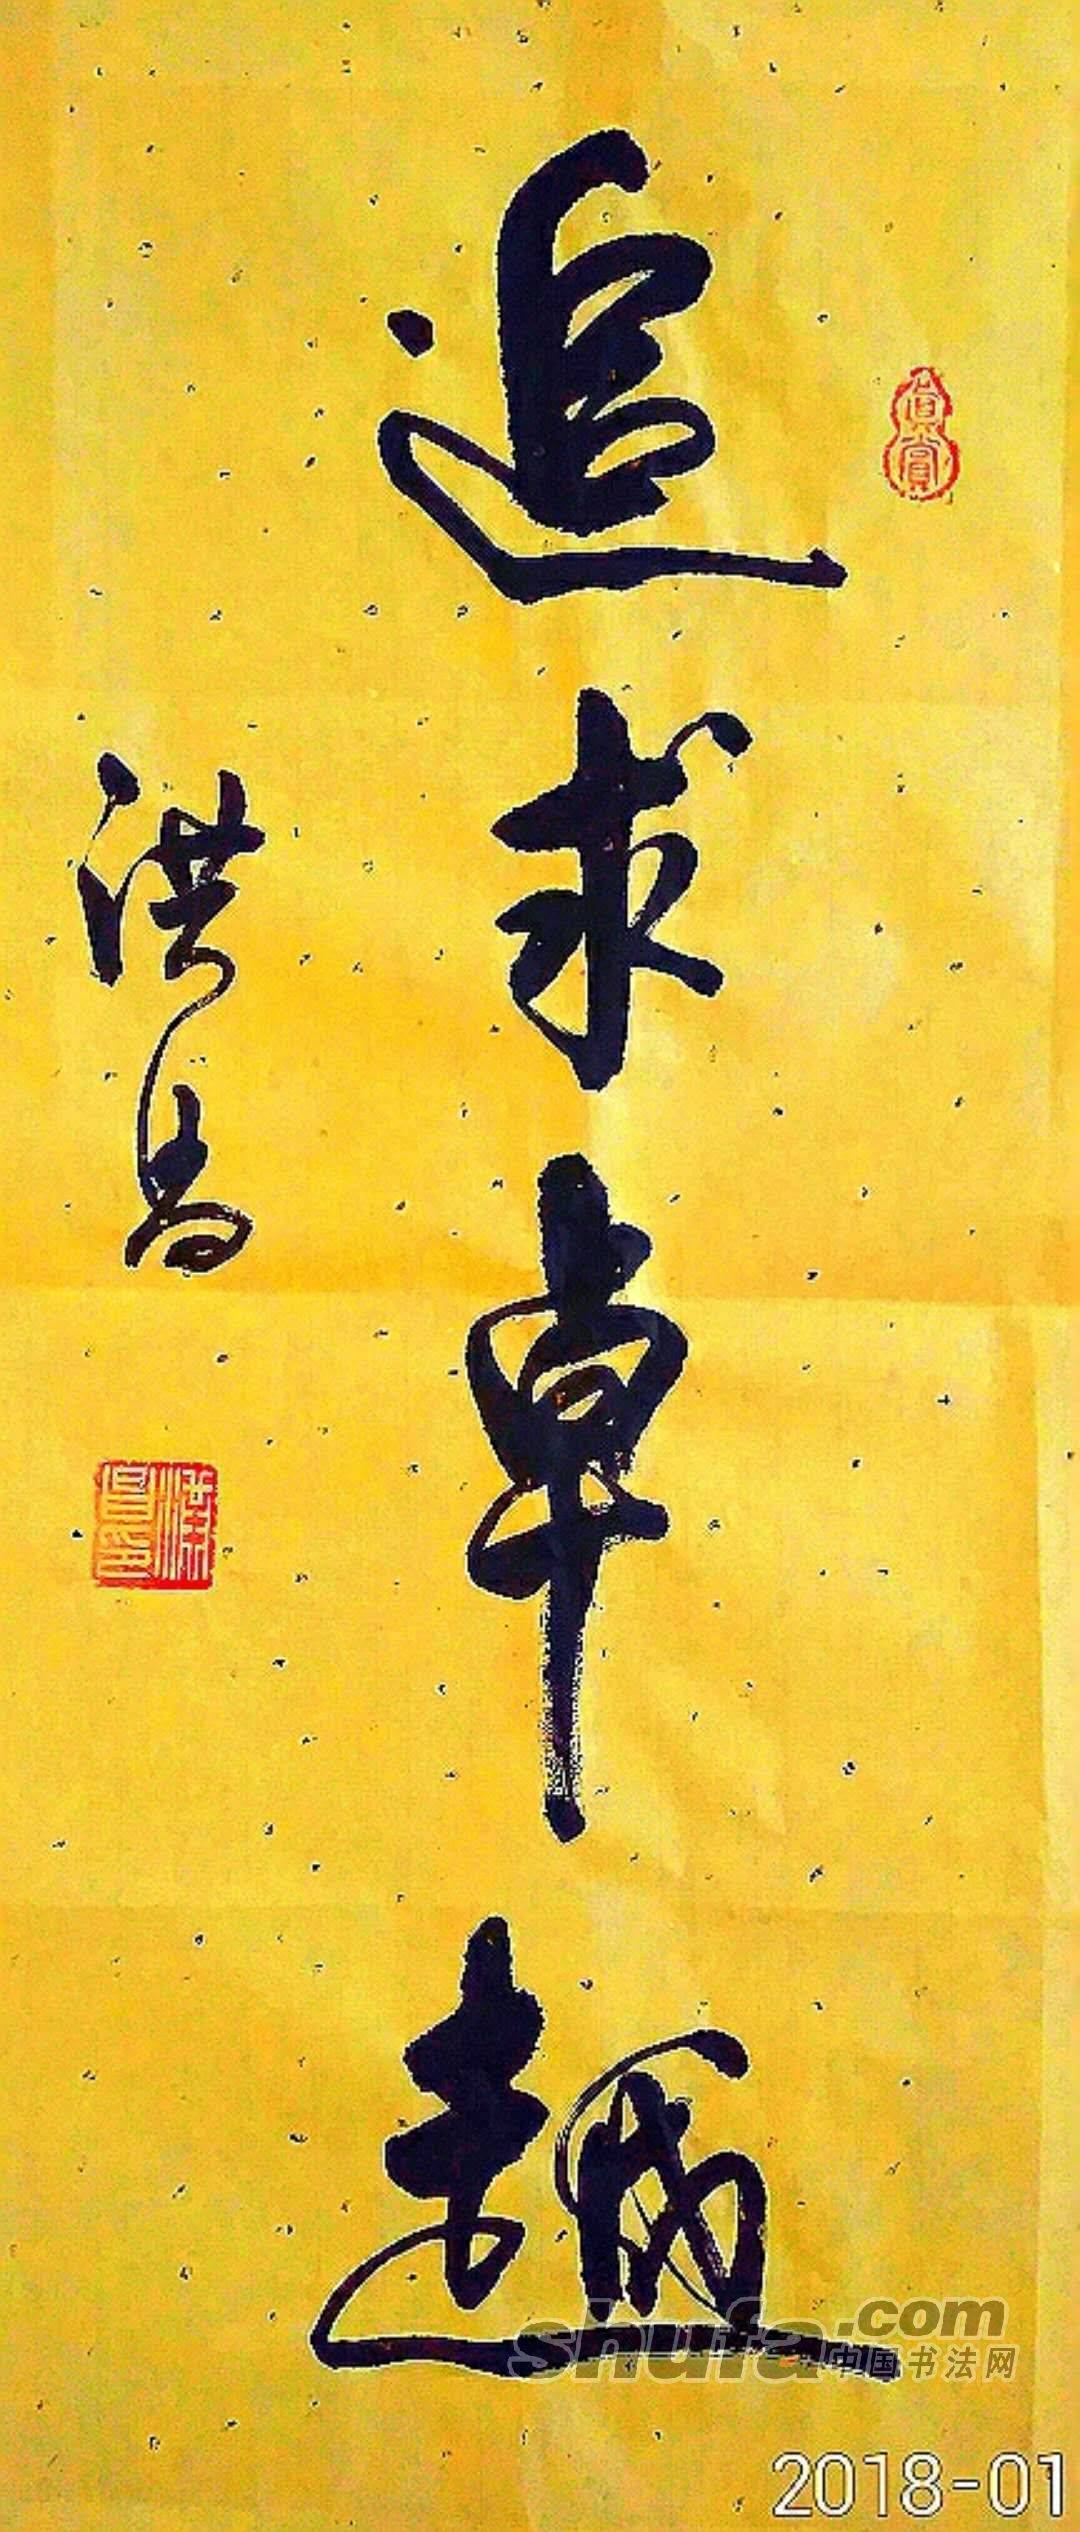 追求卓越
洪昌
真赏
shufa.com
中国书法网
2018-01